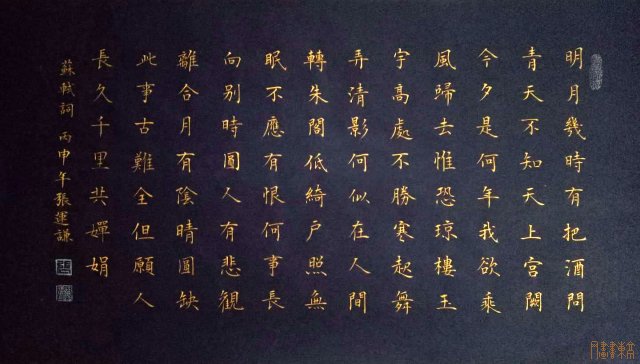 明月幾時有把酒問
青天不知天上宮闕
今夕是何年我欲乘
風歸去惟恐瓊樓玉
宇高處不勝寒起舞
弄清影何似在人間
轉朱閣低綺戶照無
眠不應有恨何事長
向别時圓人有悲觀
離合月有陰晴圓缺
此事古難全但願人
長久千里共嬋娟
蘇軾詞 丙申年張運謙